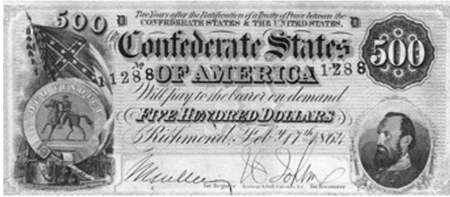 500 D Two Years after the Ratification of a Treaty of Peace between the D
CONFEDERATE STATES & THE UNITED STATES,
the Confederate States 500
No 11288 OF AMERICA 1288
Will pay to the bearer on demand
FIVE HUNDRED DOLLARS
Richmond Feb. 17th 1864
for Register for Treasurer